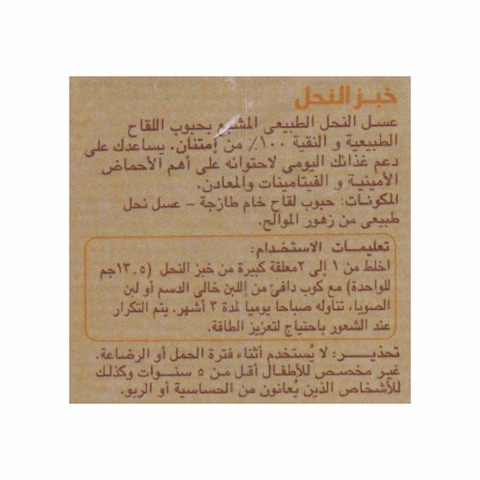 خبز النحل
عسل النحل الطبيعى المشبع بحبوب اللقاح
الطبيعية و النقية ١٠٠٪ من إمتنان. يساعدك على
دعم غذائك اليومى لاحتوائه على أهم الأحماض
الأمينية و الفيتامينات والمعادن.
المكونات: حبوب لقاح خام طازجة - عسل نحل
طبيعى من زهور الموالح.
تعليمات الاستخدام:
اخلط من ١ إلى ٢معلقة كبيرة من خبز النحل (١٣.٥جم
للواحدة) مع كوب دافئ من اللبن خالى الدسم أو لبن
الصويا، تناوله صباحا يوميا لمدة ٣ أشهر. يتم التكرار
عند الشعور باحتياج لتعزيز الطاقة.
تحذير: لا يُستخدم أثناء فترة الحمل أو الرضاعة.
غير مخصص للأطفال أقل من ٥ سنوات وكذلك
للأشخاص الذين يُعانون من الحساسية أو الربو.